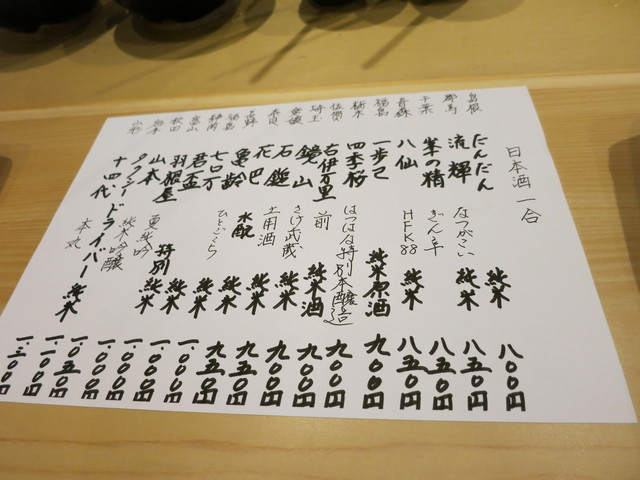 日本酒 一合
島根 だんだん 純米 八〇〇円
群馬 流輝 なつがこい 純米 八五〇円
千葉 峯の精 八五〇円
青森 八仙 HFK88 純米 八五〇円
福島 一歩己 純米原酒 九〇〇円
栃木 四季桜 はつはな特別本醸造 九〇〇円
佐賀 古伊万里 前 純米酒 九〇〇円
埼玉 鏡山 さけ武蔵 純米 九〇〇円
愛媛 石鎚 土用酒 純米 九五〇円
奈良 花巴 水酛 純米 九五〇円
長野 亀齢 ひとごこち 純米 一.〇〇〇円
福島 七ロ万 特別純米 一.〇〇〇円
静岡 君盃 純米 一.〇〇〇円
富山 羽根屋 夏純吟 一.〇〇〇円
秋田 山本 純米吟醸 一.〇五〇円
タクシードライバー 純米 一.一〇〇円
山形 十四代 本丸 一.三〇〇円